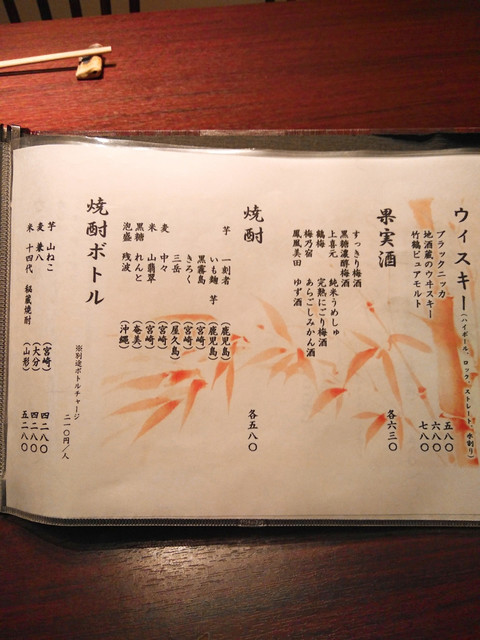 ウィスキー(ハイボール、ロック、ストレート、水割り)
ブラックニッカ 五八〇
地酒蔵のウヰスキー 六八〇
竹鶴ピュアモルト 七八〇
果実酒 各六三〇
すっきり梅酒
黒糖濃醇梅酒
上喜元 純米うめしゅ
鶴梅 完熟にごり梅酒
梅乃宿 あらごしみかん酒
鳳凰美田 ゆず酒
焼酎 各五八〇
芋 一刻者 (鹿児島)
いも麹 芋 (鹿児島)
黒霧島 (宮崎)
きろく (宮崎)
三岳 (屋久島)
麦 中々 (宮崎)
米 山翡翠 (宮崎)
黒糖 れんと (奄美)
泡盛 残波 (沖縄)
焼酎ボトル
※別途ボトルチャージ 二一〇円/人
芋 山ねこ (宮崎) 四二八〇
麦 兼八 (大分) 四二八〇
米 十四代 秘蔵焼酎 (山形) 五二八〇